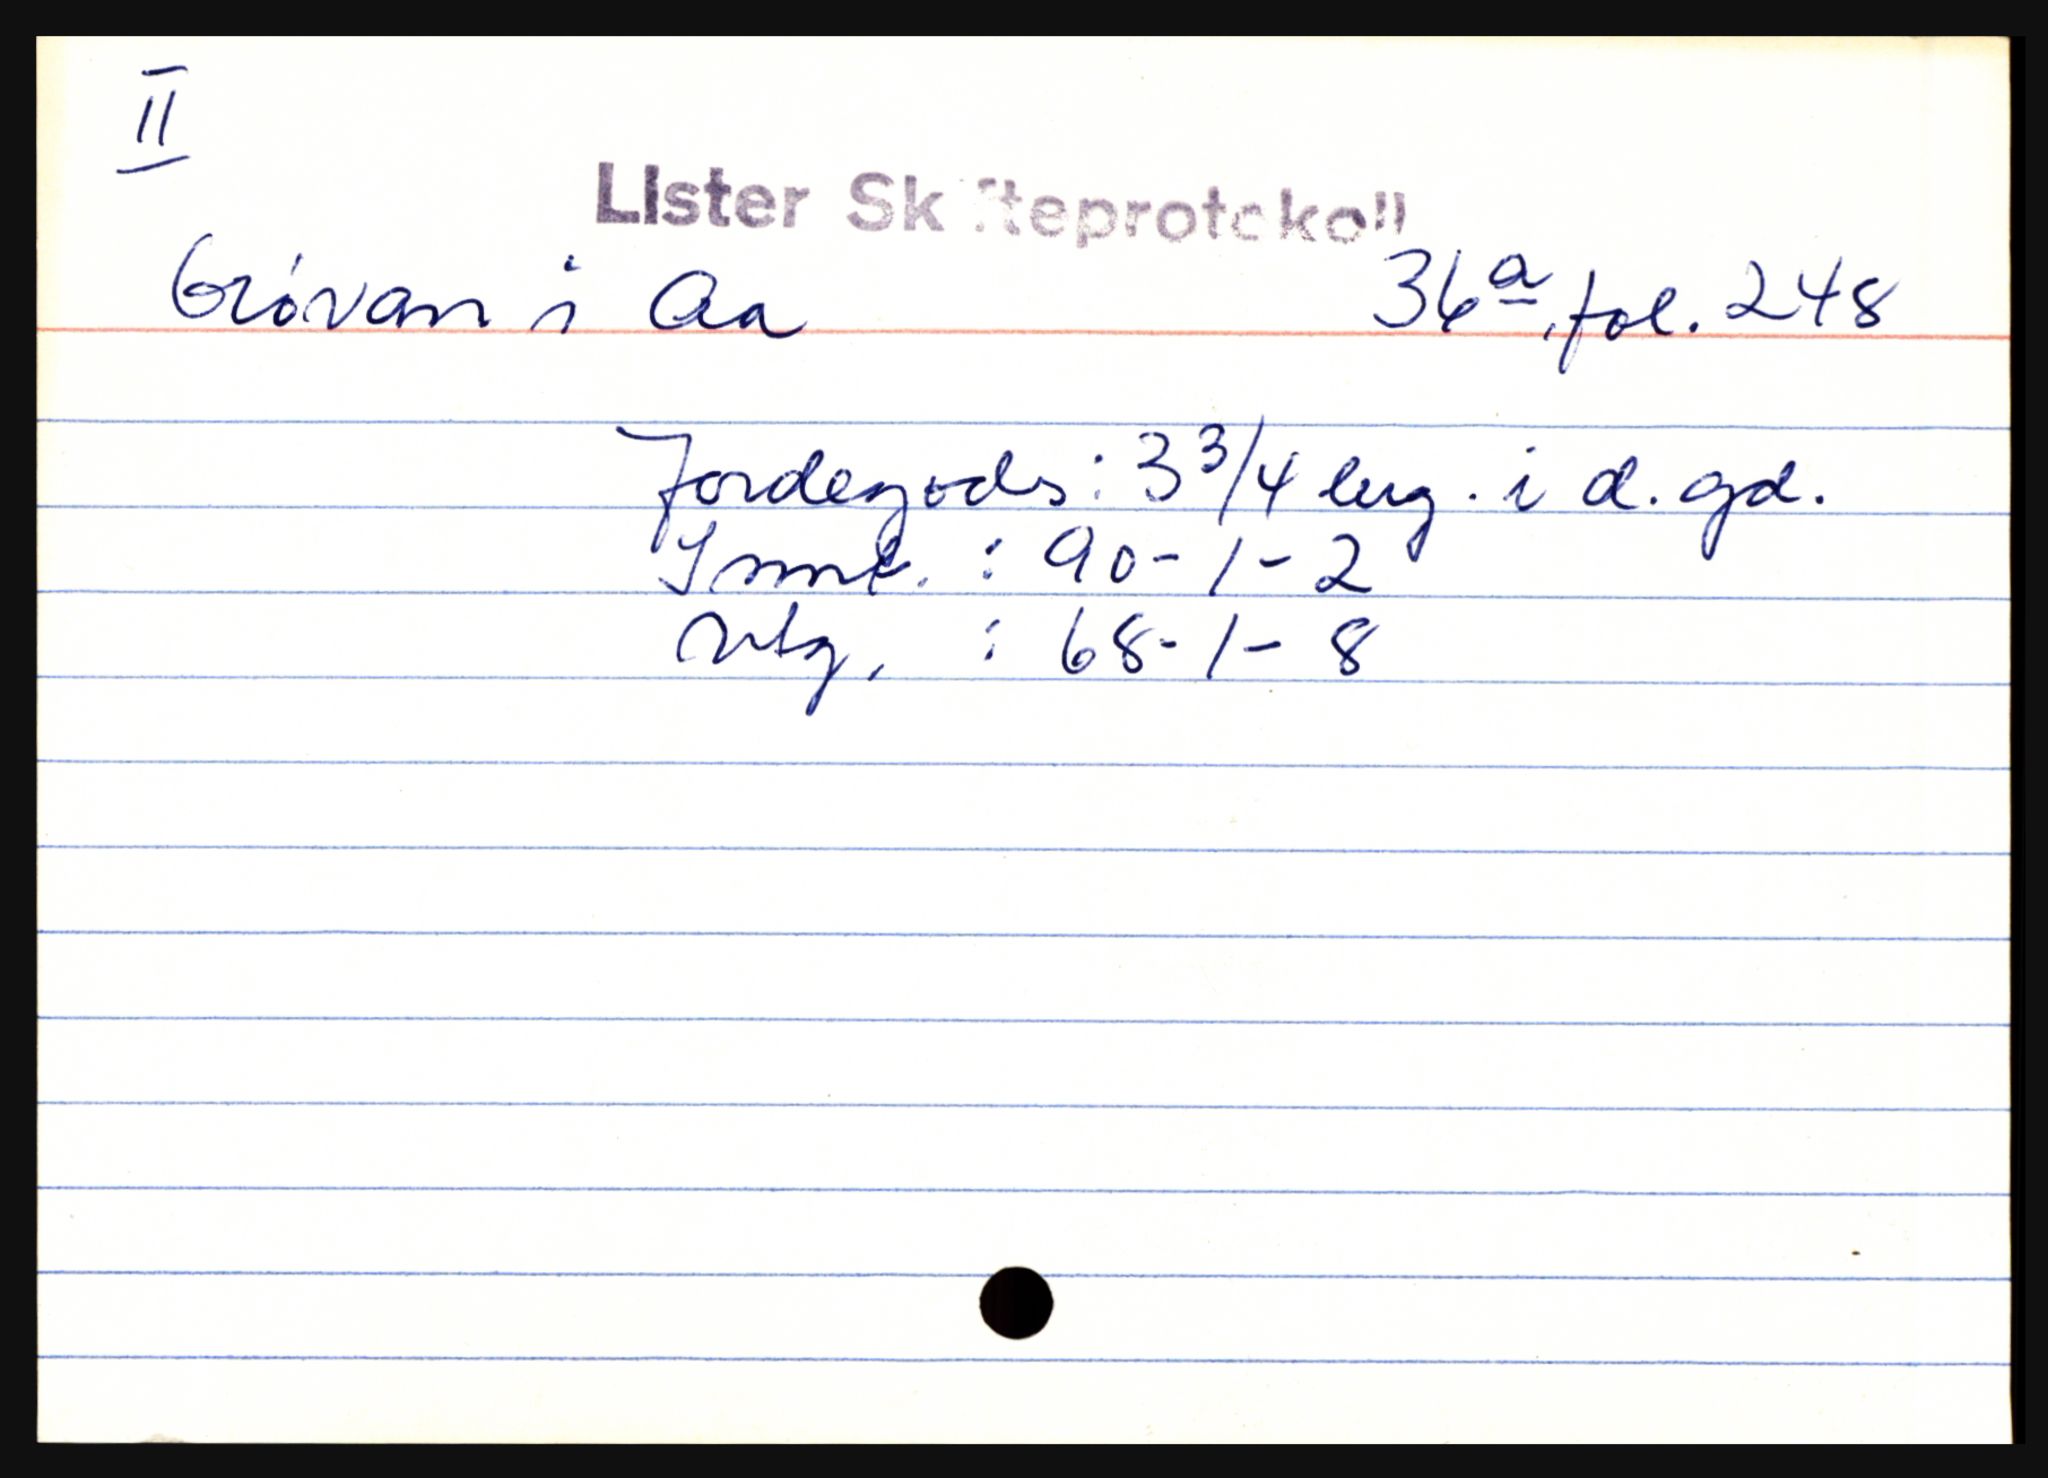 II
LIster Skifteprotokoll
Grövan i Aa 36a, fol. 248
Jordegods: 3 3/4 lrg. i d. gd.
Innt. : 90-1-2
Utg. : 68-1-8